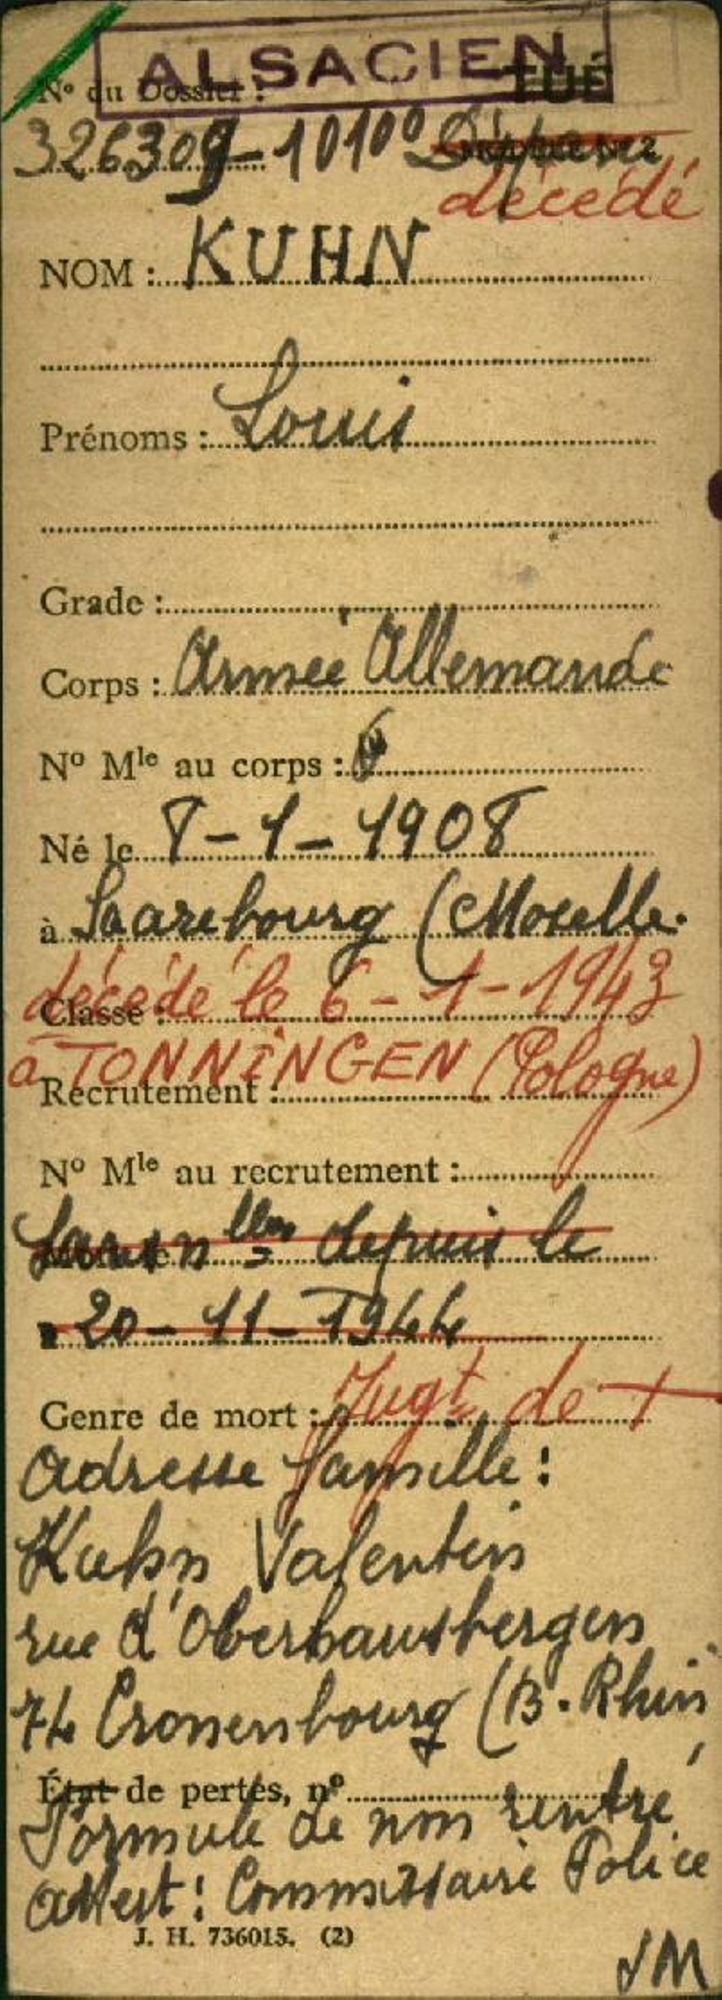 ALSACIEN
N° du Dossier :
TUÉ
326309-1010° Disparu
décédé
NOM : KUHN
Prénoms : Louis
Grade :
Corps : Armée Allemande
N° Mle au corps :
Né le 8-1-1908
à Saarebourg (Moselle.
décédé le 6-1-1943
Classe :
à TONNINGEN (Pologne)
Recrutement :
N° Mle au recrutement :
Sans nlles depuis le
20-11-1944
Genre de mort : Jugt de +
Adresse famille :
Kuhn Valentin
rue d'Oberhausbergen
74 Cronenbourg (B.Rhin
État de pertes, n°
Formule de non rentré
Attest : Commissaire Police
J. H. 736015. (2)
JM